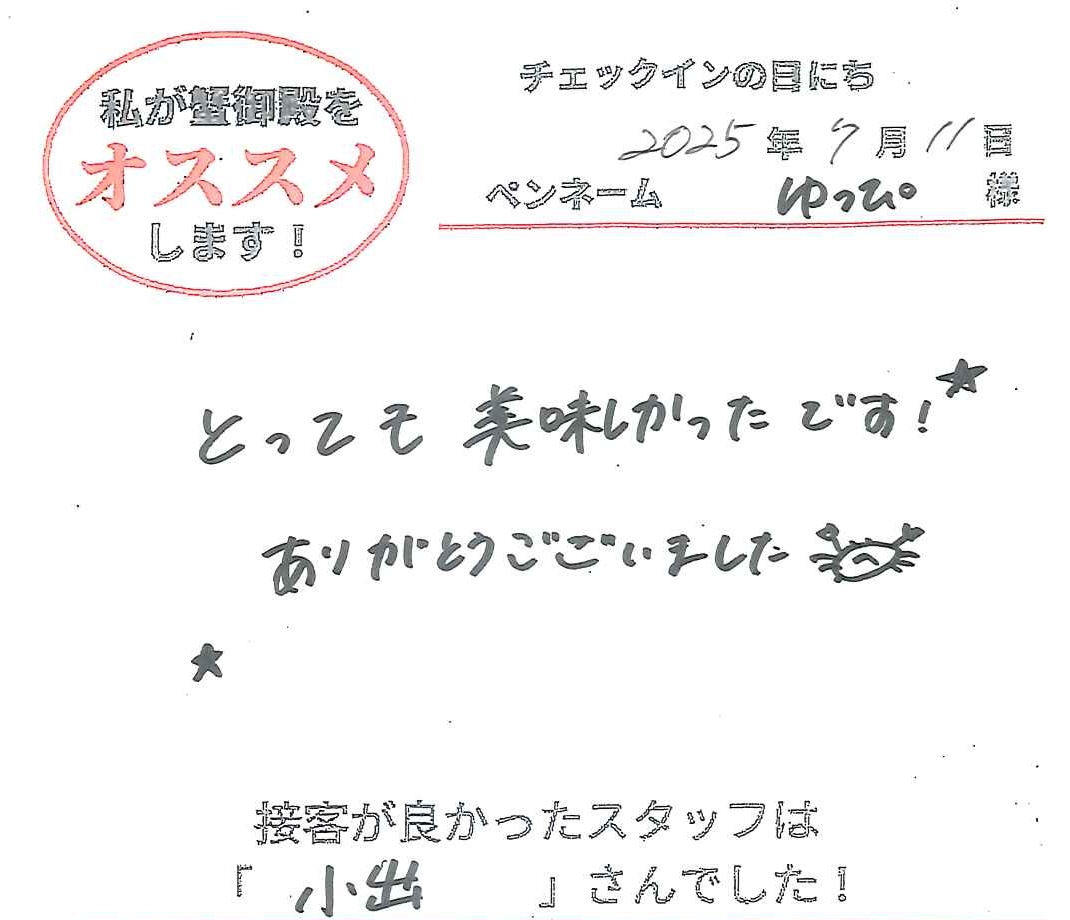 私が蟹御殿を
オススメ
します！
チェックインの日にち
2025年7月11日
ペンネーム ゆっぴ。様
とっても美味しかったです！
ありがとうございました
接客が良かったスタッフは
「小出」さんでした！